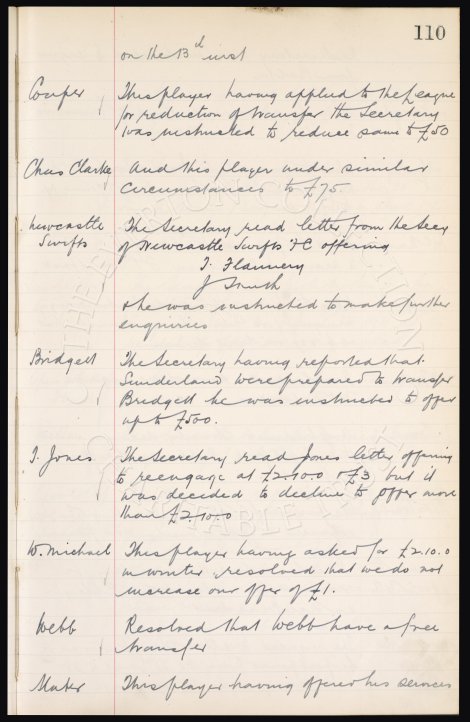 110
on the 13th inst
Cooper This player having applied to the League
for reduction of transfer the Secretary
was instructed to reduce same to £50
Chas Clarke And this player under similar
circumstances to £75
Newcastle The Secretary read letter from the Secy
Swifts of Newcastle Swifts FC offering
T. Flannery
J Smith
& he was instructed to make further
enquiries
Bridgett The Secretary having reported that
Sunderland were prepared to transfer
Bridgett he was instructed to offer
up to £500.
T. Jones The Secretary read Jones letter offering
to reengage at £2.10.0 & £3 but it
was decided to decline to offer more
than £2.10.0
W. Michael This player having asked for £2.10.0
in winter resolved that we do not
increase our offer of £1.
Webb Resolved that Webb have a free
transfer
This player having offered his services
THE EVERTON COLLECTION
CHARITABLE TRUST